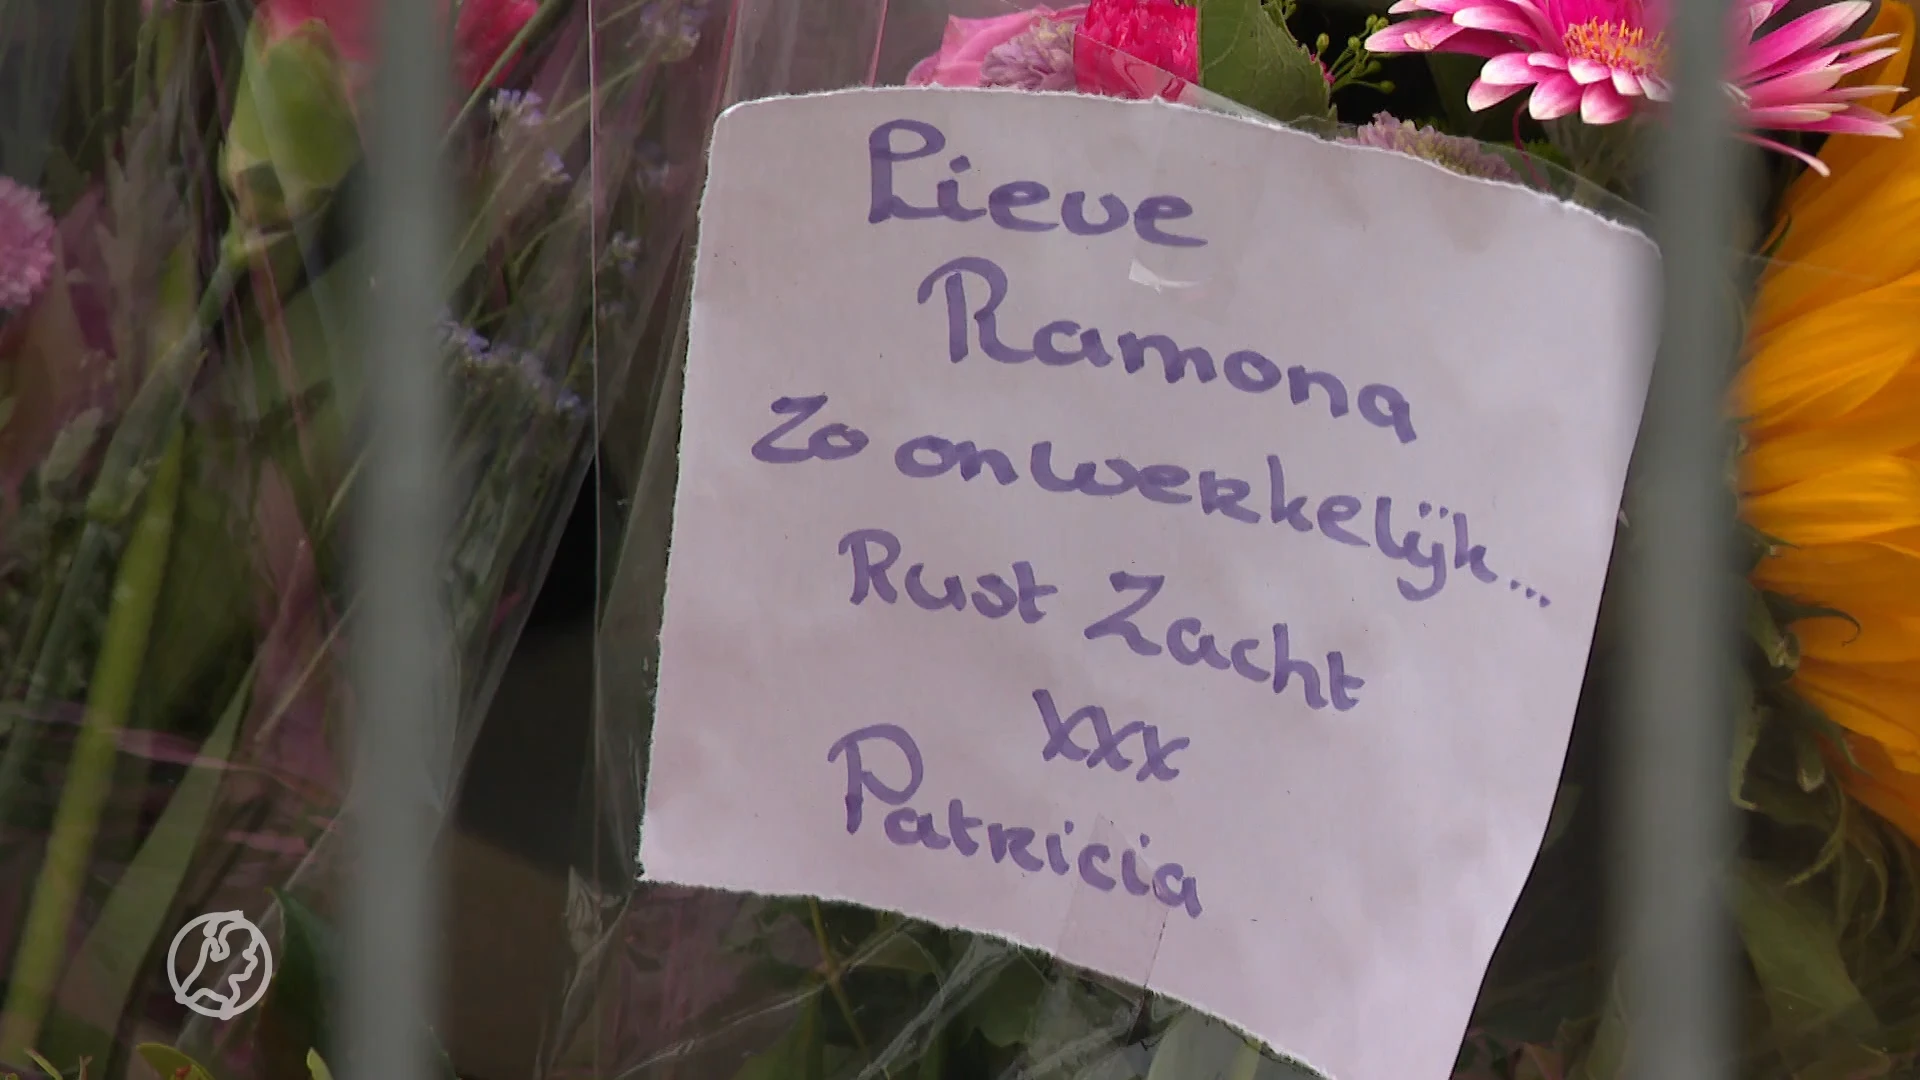 Lieve
Ramona
Zo onwerkelijk...
Rust Zacht
xxx
Patricia